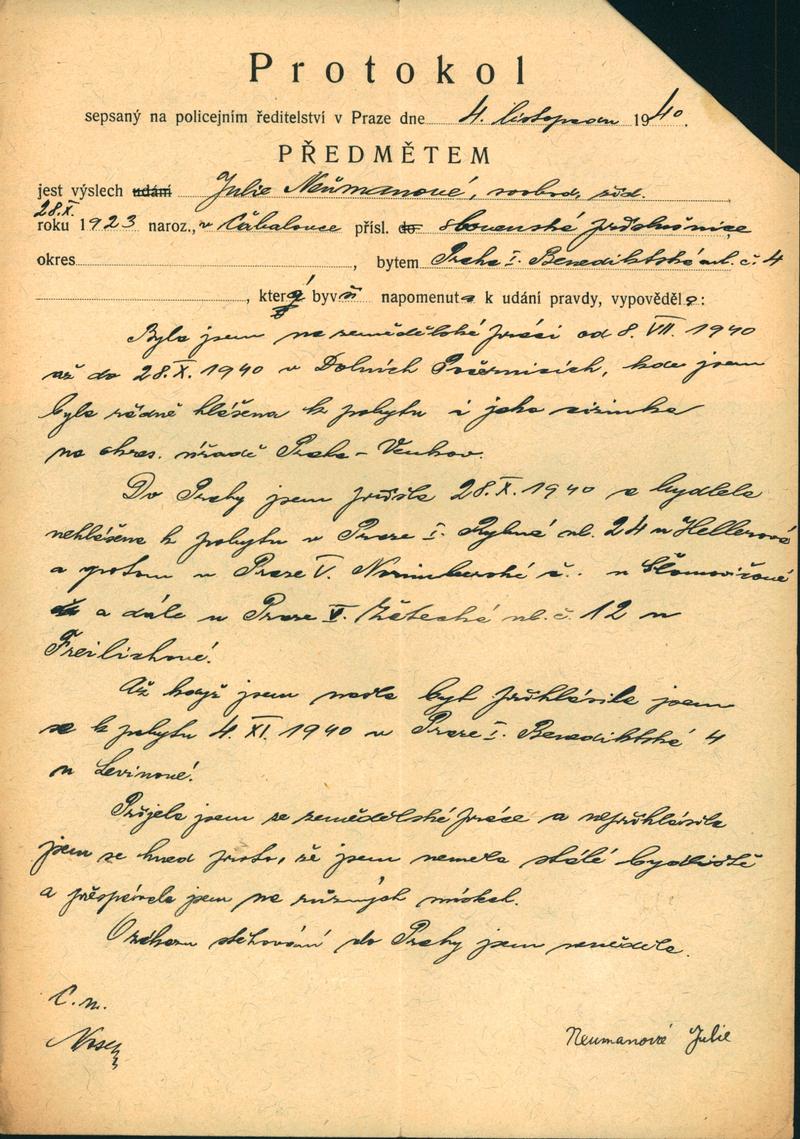 Protokol
sepsaný na policejním ředitelství v Praze dne 4. listopadu 1940.
PŘEDMĚTEM
jest výslech udání Julie Neumanové, svobod, žid.
28.X.
roku 1923 naroz., v Čabalovce přísl. do slovenské příslušnice
okres , bytem Praha I. Benediktská ul. č. 4
, která byvši napomenuta k udání pravdy, vypověděla:
Byla jsem na zemědělské práci od 8. VII. 1940
až do 28.X. 1940 v Dolních Počernicích, kde jsem
byla řádně hlášena k pobytu i jako cizinka
na okres. úřadě Praha - Venkov.
Do Prahy jsem přišla 28.X.1940 a bydlela
nehlášena k pobytu v Praze I. Rybná ul. 24 u Hellerové
a potom v Praze V. Norimberská č.. u
a dále v Praze V. Žatecká ul. č. 12 u
Freilichové.
Až když jsem našla byt přihlásila jsem
se k pobytu 4. XI. 1940 v Praze I. Benediktská 4
u Levinové.
Přijela jsem ze zemědělské práce a nepřihlásila
jsem se hned proto, že jsem neměla stálé bydliště
a přespávala jsem na různých místech.
O zákazu stěhování do Prahy jsem nevěděla.
C. n.
Neumanová Julie